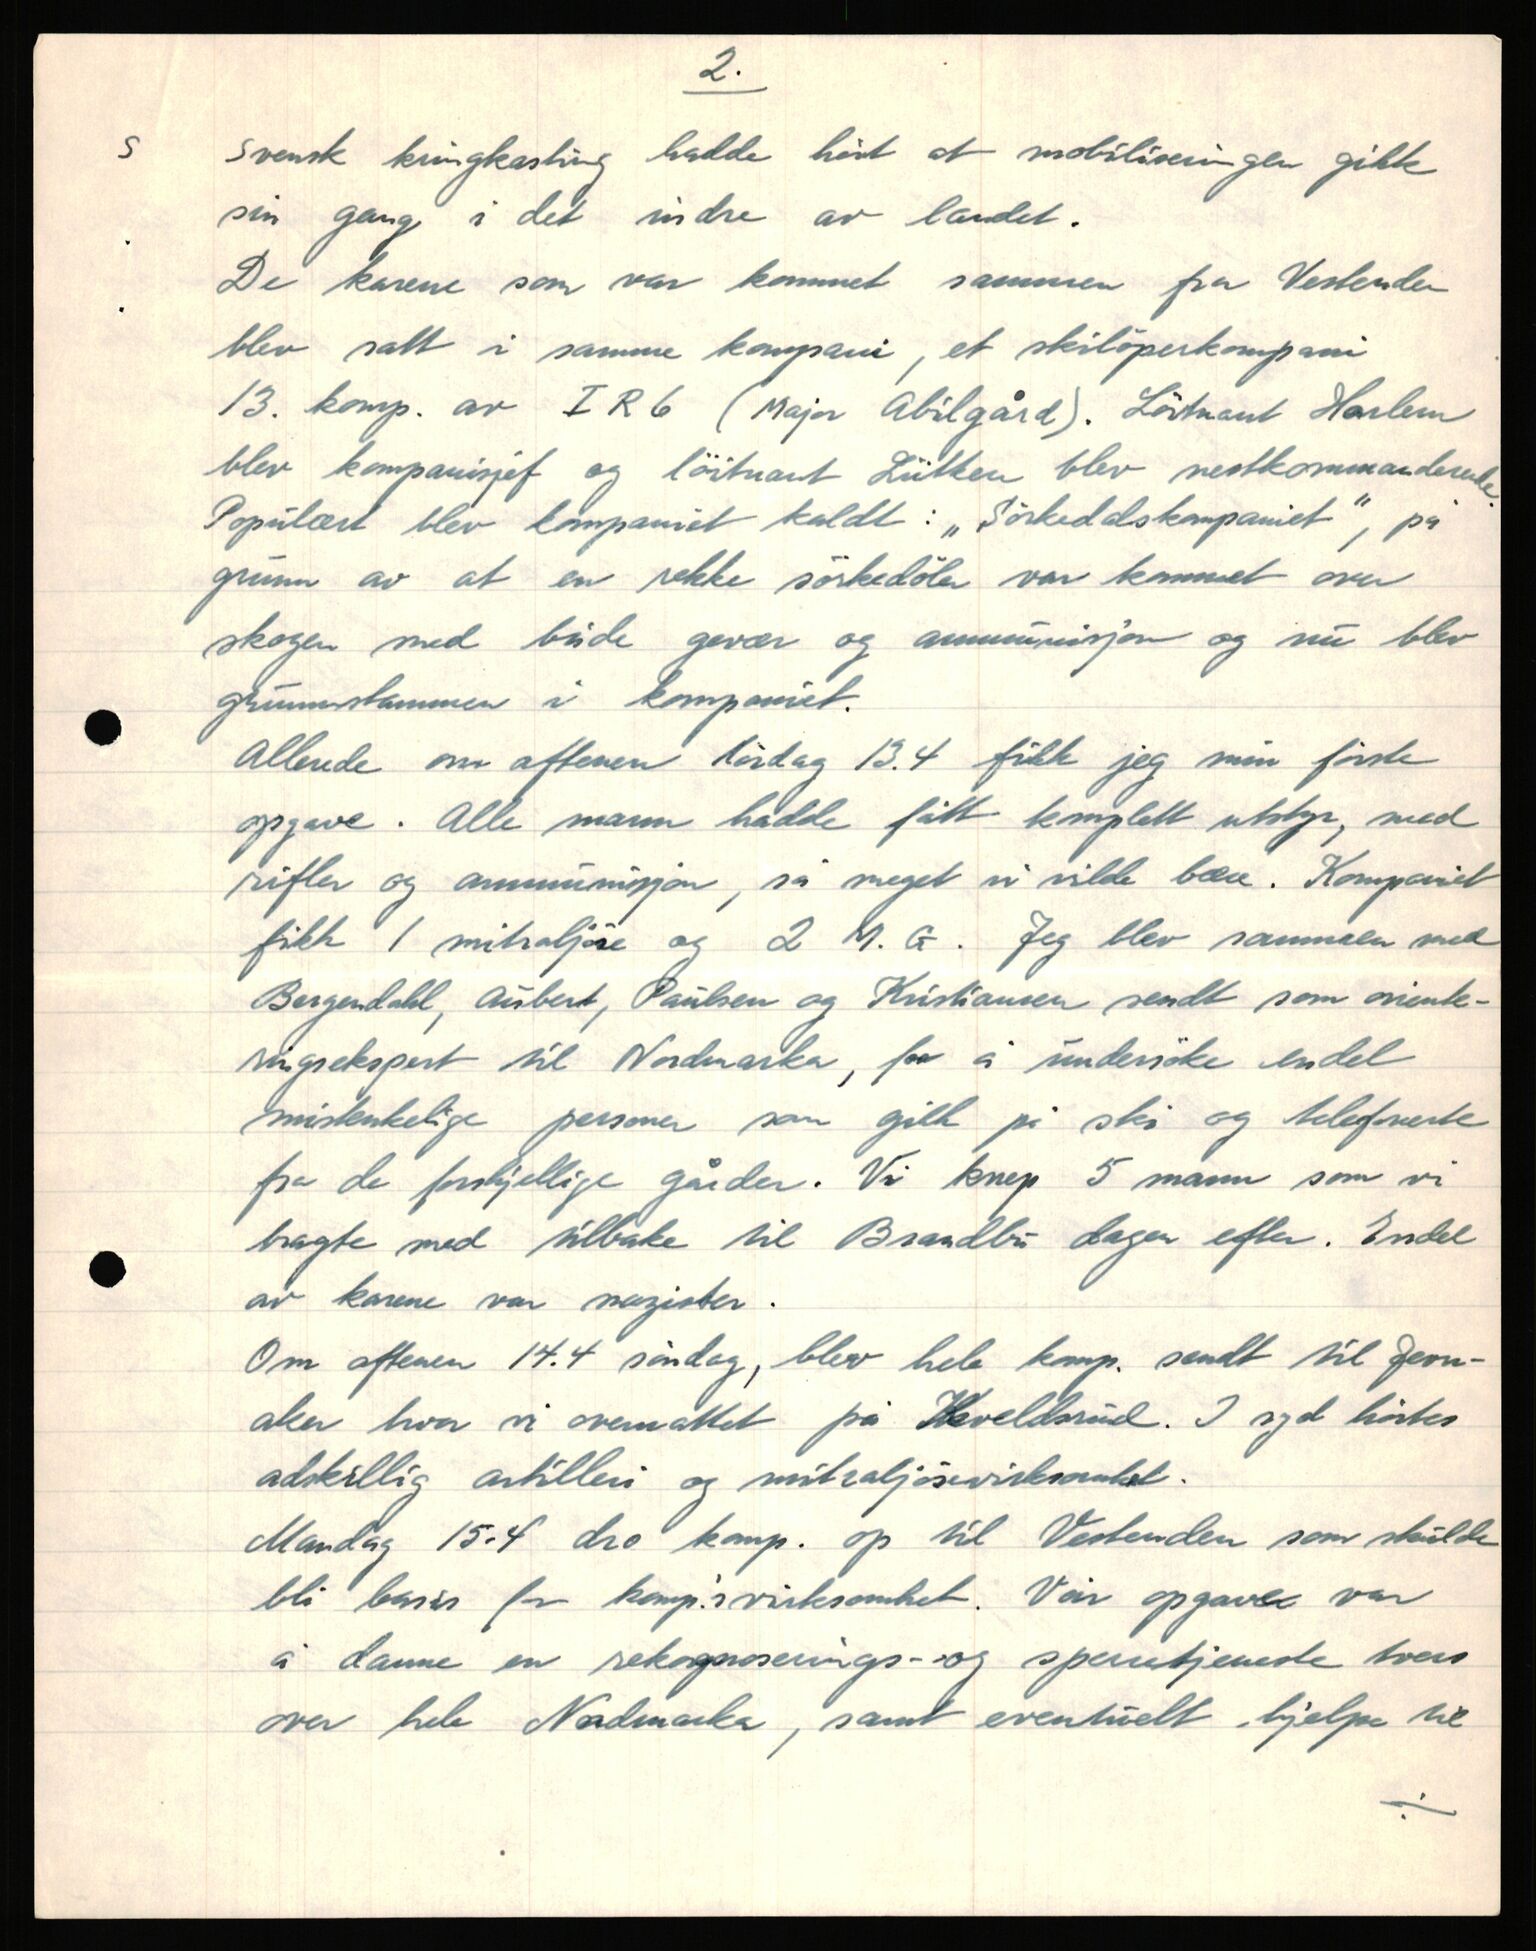 2.
s svensk kringkasting hadde hört at mobiliseringen gikk
sin gang i det indre av landet.
De karene som var kommet sammen fra Vestenden
blev satt i samme kompani, et skilöperkompani
13. komp. av I R 6 (Major Abilgård). Löitnant Harlem
blev kompanisjef og löitnant Lütken blev nestkommanderende.
Populært blev kompaniet kaldt: „Sörkedalskompaniet", på
grunn av at en rekke sörkedöler var kommet over
skogen med både gevær og ammunisjon og nu blev
grunnstammen i kompaniet.
Allerede om aftenen lördag 13.4 fikk jeg min förste
opgave. Alle mann hadde fått komplett utstyr, med
rifler og ammunisjon, så meget vi vilde bære. Kompaniet
fikk 1 mitraljöse og 2 M.G. Jeg blev sammen med
Bergendahl, Aubert, Paulsen og Kristiansen sendt som oriente-
ringsekspert til Nordmarka, for å undersöke endel
mistenkelige personer som gikk på ski og telefonerte
fra de forskjellige gårder. Vi knep 5 mann som vi
bragte med tilbake til Brandbu dagen efter. Endel
av karene var nazister.
Om aftenen 14.4 söndag, blev hele komp. sendt til Jevn-
aker hvor vi overnattet på Kveldsrud. I syd hörtes
adskillig artilleri og mitraljösevirksomhet.
Mandag 15.4 dro komp. op til Vestenden som skulde
bli basis for komp.'s virksomhet. Vår opgave var
å danne en rekognoserings- og sperretjeneste tvers
over hele Nordmarka, samt eventuelt hjelpe til